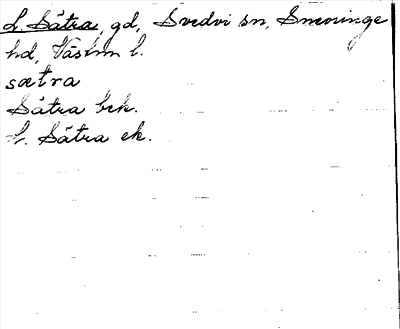 L. Sätra, gd, Svedvi sn, Snevringe
hd, Västm l.
sætra
Sätra brk.
L. Sätra ek.